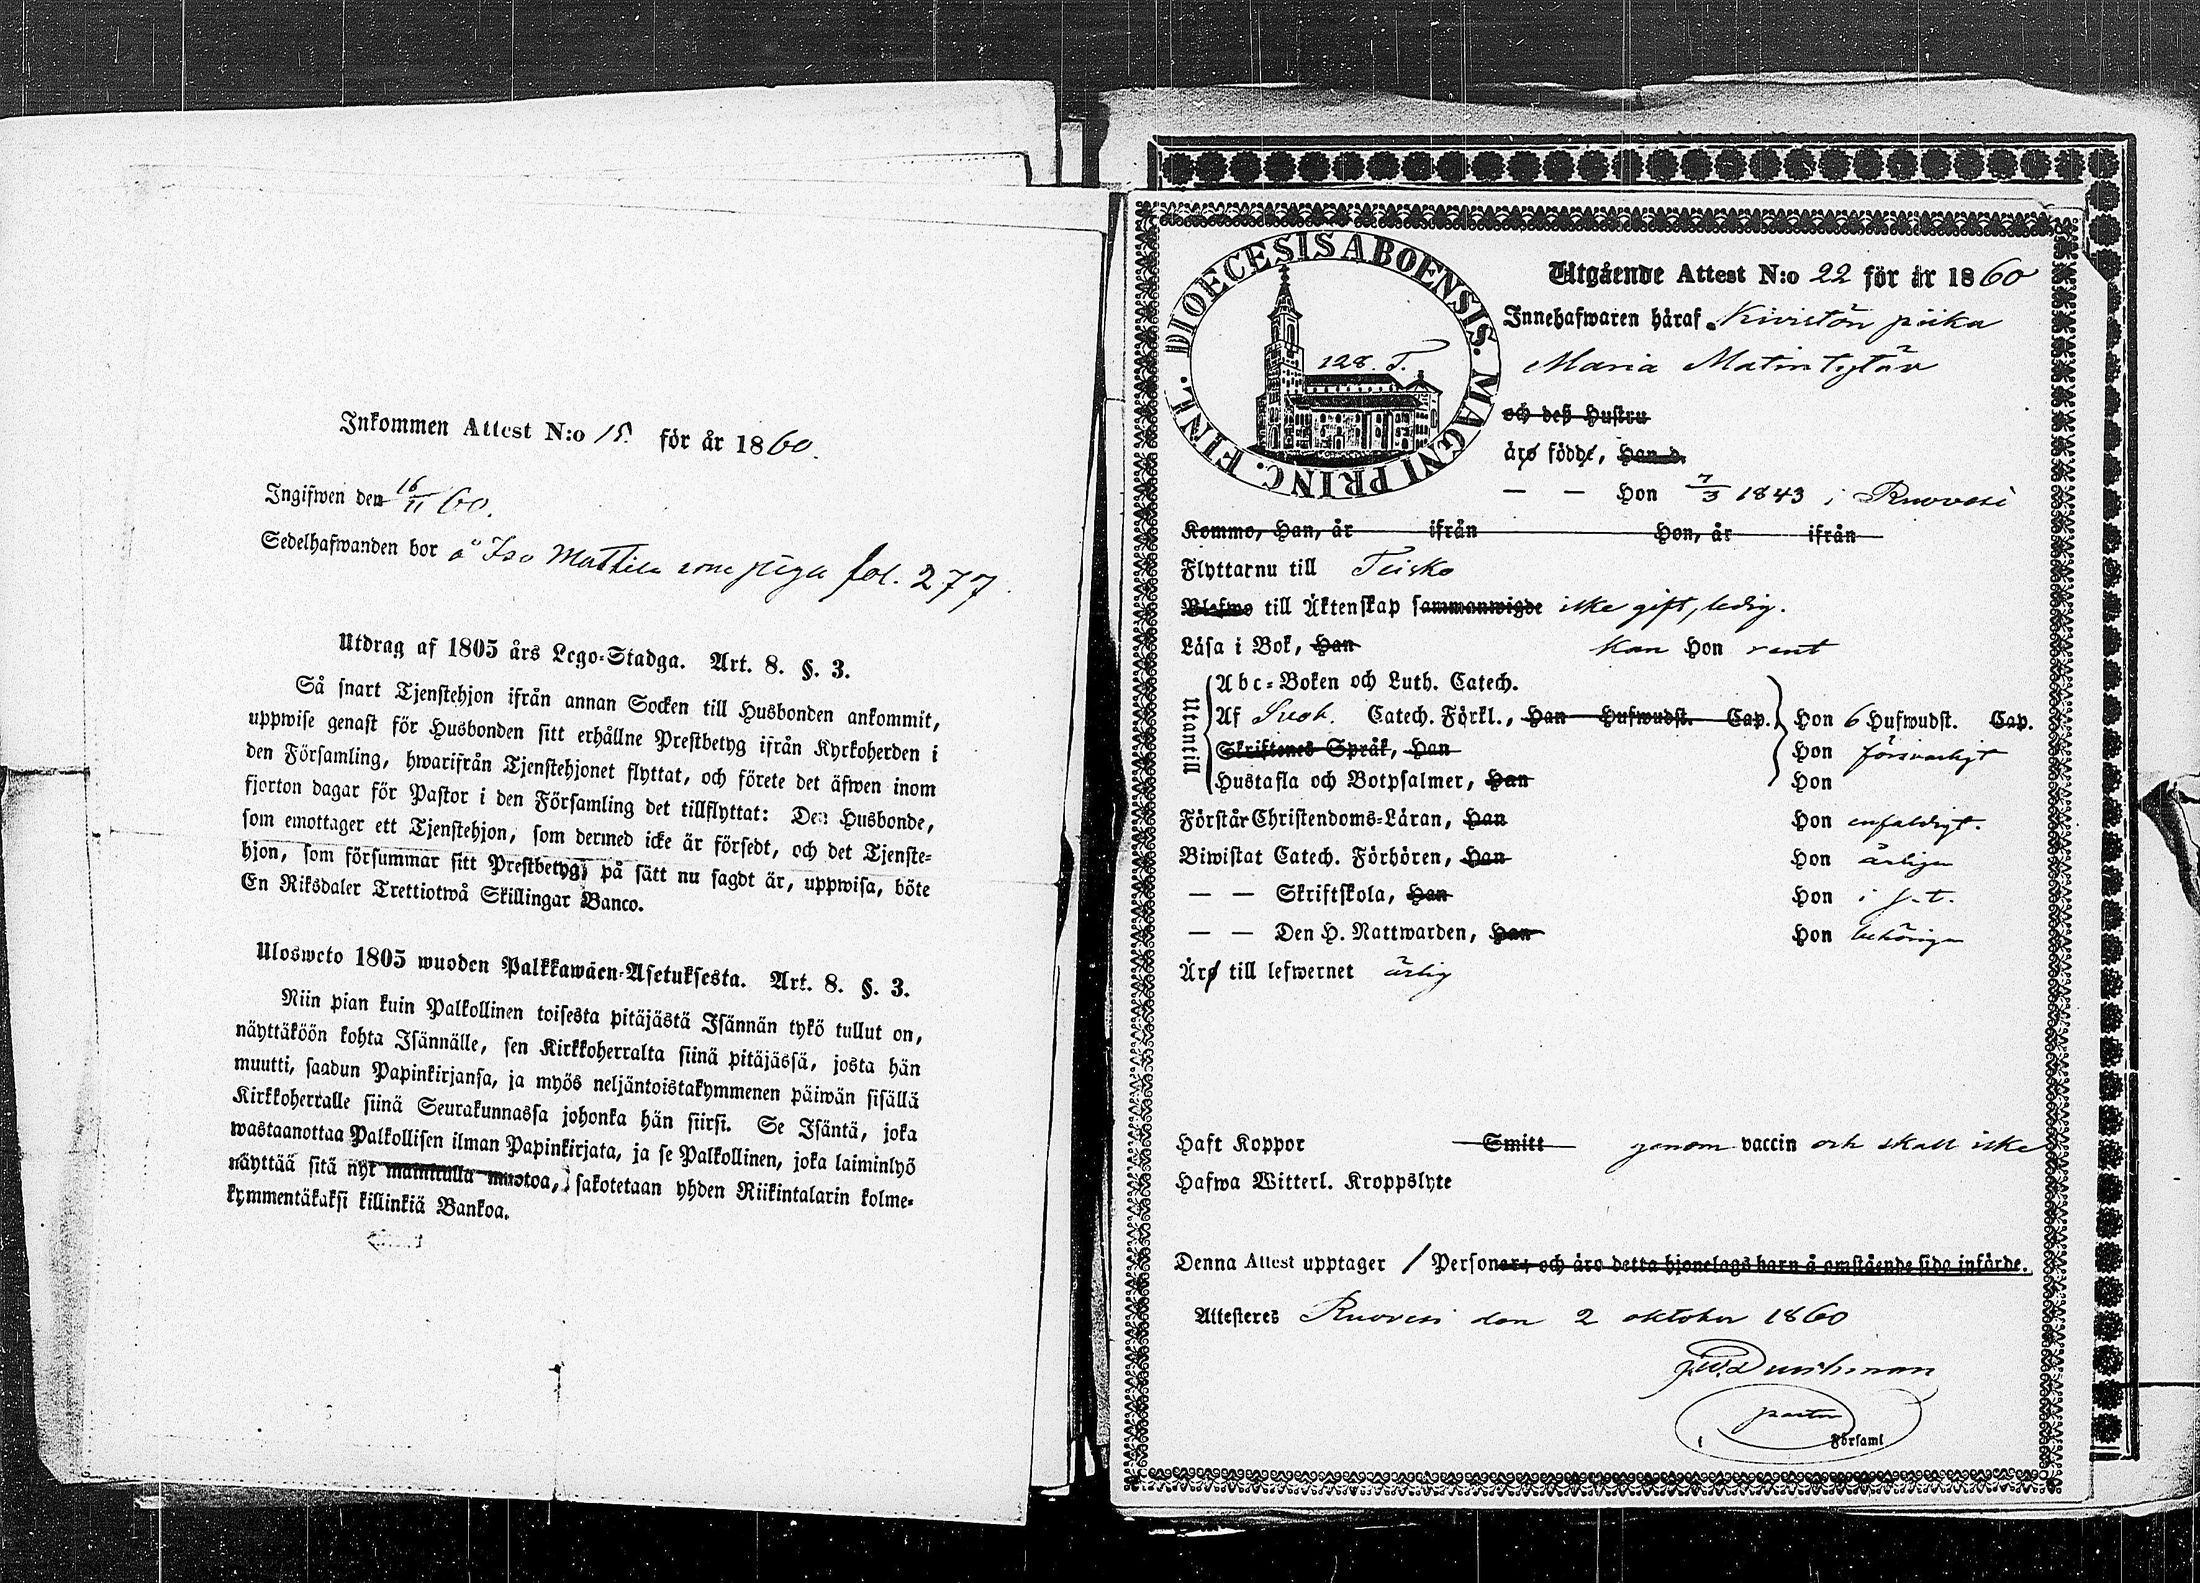 Inkommen Attest N:o 15. för år 1860.
Ingifwen den 16/11 60.
Sedelhafwanden bor å Iso Mattila som piga fol. 277.
Utdrag af 1805 års Lego-Stadga. Art. 8. §. 3.
Så snart Tjenstehjon ifrån annan Socken till Husbonden ankommit,
uppwise genast för Husbonden sitt erhållne Prestbetyg ifrån Kyrkoherden i
den Församling, hwarifrån Tjenstehjonet flyttat, och förete det äfwen inom
fjorton dagar för Pastor i den Församling det tillflyttat: Den Husbonde,
som emottager ett Tjenstehjon, som dermed icke är försedt, och det Tjenste-
hjon, som försummar sitt Prestbetyg, på sätt nu sagdt är, uppwisa, böte
En Riksdaler Trettiotwå Skillingar Banco.
Ulosweto 1805 wuoden Palkkawäen-Asetuksesta. Art. 8. §. 3.
Niin pian kuin Palkollinen toisesta pitäjästä Isännän tykö tullut on,
näyttäköön kohta Isännälle, sen Kirkkoherralta siinä pitäjässä, josta hän
muutti, saadun Papinkirjansa, ja myös neljäntoistakymmenen päiwän sisällä
Kirkkoherralle siinä Seurakunnassa johonka hän siirsi. Se Isäntä, joka
wastaanottaa Palkollisen ilman Papinkirjata, ja se Palkollinen, joka laiminlyö
näyttää sitä nyt mainitulla muotoa, sakotetaan yhden Riikintalarin kolme-
kymmentäkaksi killinkiä Bankoa.
DIOECESIS ABOENSIS. MAGNI PRINC. FINL.
128. T.
Utgående Attest N:o 22 för år 1860
Innehafwaren häraf Kivistön piika
Maria Matintytär
och deß Hustru
äro födde, Han d.
— — Hon 7/3 1843 i Ruovesi
Komme, Han, år ifrån Hon, år ifrån
Flyttar nu till Teisko
Blefwo till Äktenskap sammanwigde icke gift, ledig.
Läsa i Bok, Han kan Hon rent
Utantill
Abc-Boken och Luth. Catech.
Af Sveb. Catech. Förkl., Han Hufwudst. Cap. Hon 6 Hufwudst. Cap.
Skriftenes Språk, Han Hon försvarligt
Hustafla och Botpsalmer, Han Hon
Förstår Christendoms-Läran, Han Hon enfaldigt.
Biwistat Catech. Förhören, Han Hon årligen
— — Skriftskola, Han Hon i f. t.
— — Den H. Nattwarden, Han Hon behörigen
Äro till lefwernet ärlig
Haft Koppor Smitt genom vaccin och skall icke
Hafwa Witterl. Kroppslyte
Denna Attest upptager 1 Personer, och äro detta hjonelags barn å omstående sida införde.
Attesteres Ruovesi den 2 oktober 1860
pastor
i Församl